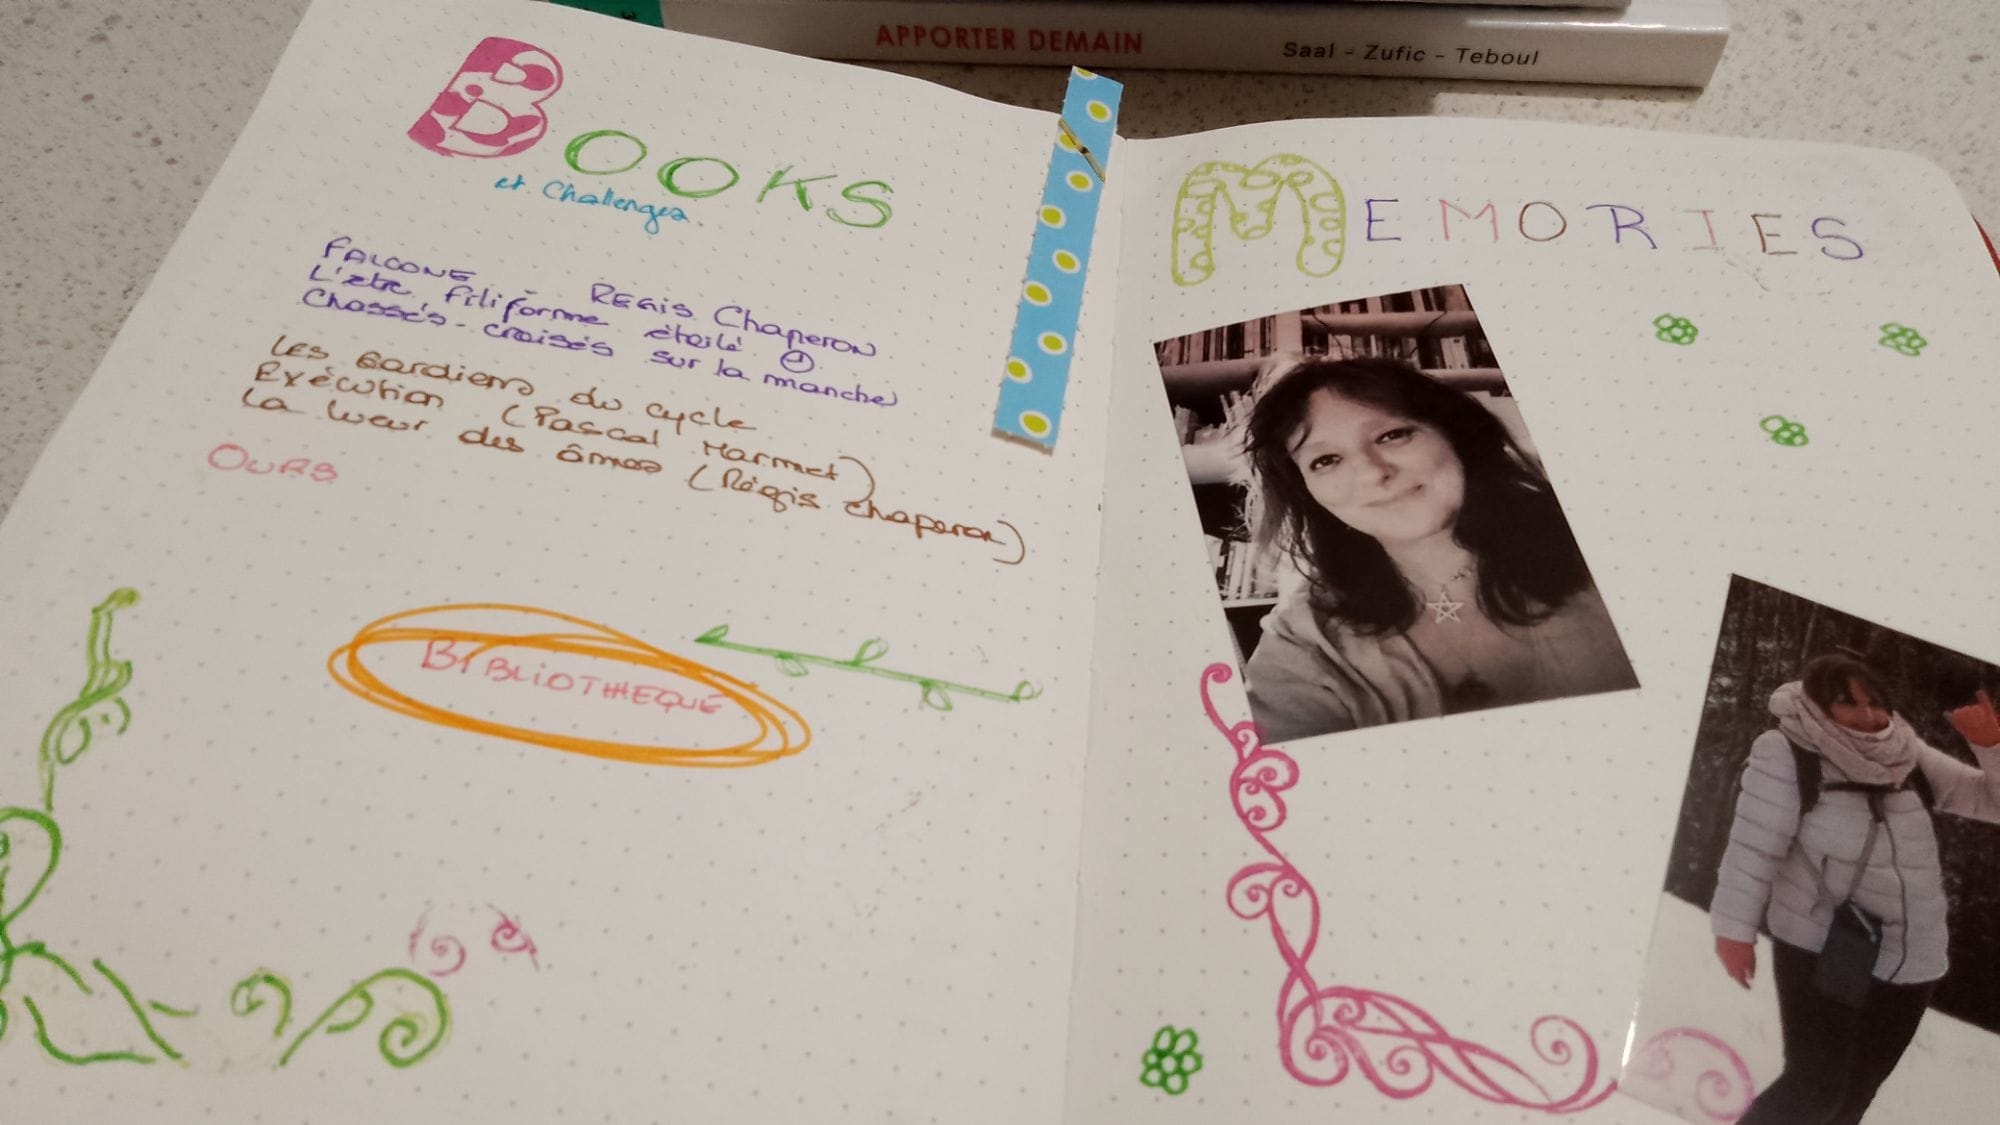 APPORTER DEMAIN
Saal - Zufic - Teboul
BOOKS
et Challenges
FALCONE - REGIS Chaperon
L'être filiforme étoilé 1
Chassés-croisés sur la manche
LES Gardiens du cycle
Exécution (Pascal Marmet)
La lueur des âmes (Régis Chaperon)
OURS
BIBLIOTHEQUE
MEMORIES